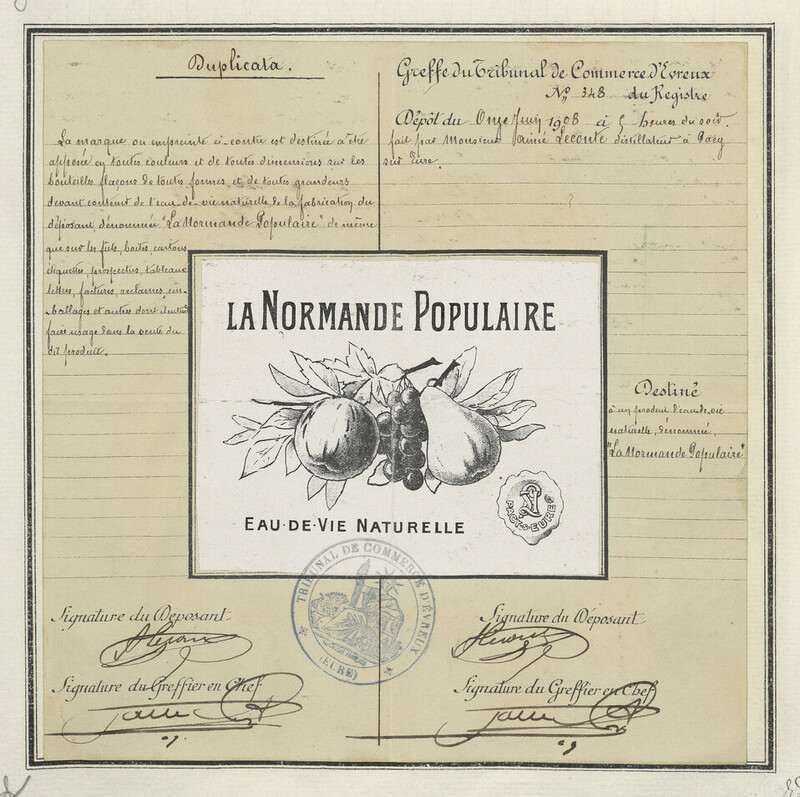 Duplicata.
La marque ou empreinte ci-contre est destinée à être
apposée en toutes couleurs et de toutes dimensions sur les
bouteilles flacons de toutes formes et de toutes grandeurs
devant contenir de l'eau-de-vie naturelle de la fabrication du
déposant, dénommée "La Normande Populaire" de même
que sur les fûts, boîtes, cartons
étiquettes, prospectus, tableaux
lettres, factures, réclames, em-
ballages et autres dont il entend
faire usage dans la vente du
dit produit.
Greffe du Tribunal de Commerce d'Evreux
No 348 du Registre
Dépôt du Onze Juin 1908 à 5 heures du soir.
fait par Monsieur Aimé Leconte distillateur à Pacy
sur Eure.
LA NORMANDE POPULAIRE
EAU-DE-VIE NATURELLE
PACY-S-EURE
Destiné
à un produit d'eau de vie
naturelle, dénommé,
"La Normande Populaire"
TRIBUNAL DE COMMERCE D'ÉVREUX
(EURE)
Signature du Déposant
Signature du Greffier en Chef
Signature du Déposant
Signature du Greffier en Chef